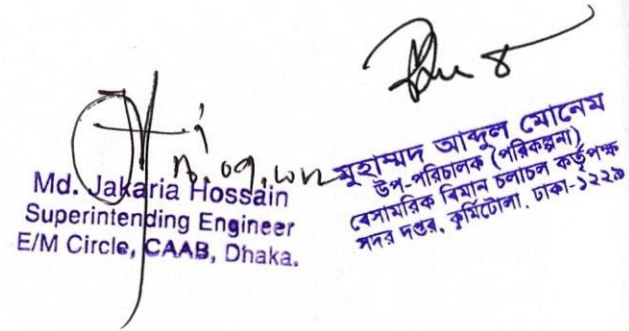 Md. Jakaria Hossain
Superintending Engineer
E/M Circle, CAAB, Dhaka.
মুহাম্মদ আব্দুল মোনেম
উপ-পরিচালক (পরিকল্পনা)
বেসামরিক বিমান চলাচল কর্তৃপক্ষ
সদর দপ্তর, কুর্মিটোলা, ঢাকা-১২২৯